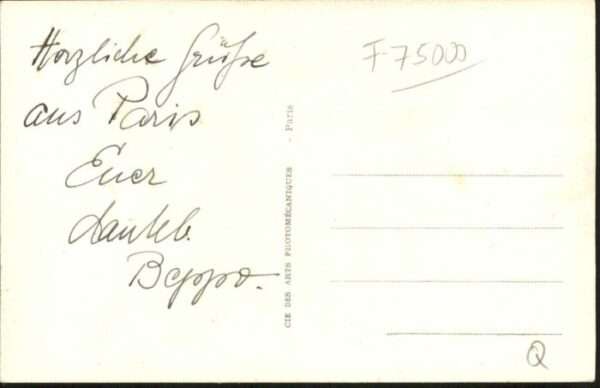 Herzliche Grüße
aus Paris
Euer
dankb.
Beppo.
CIE DES ARTS PHOTOMÉCANIQUES - Paris
F 75000
Q